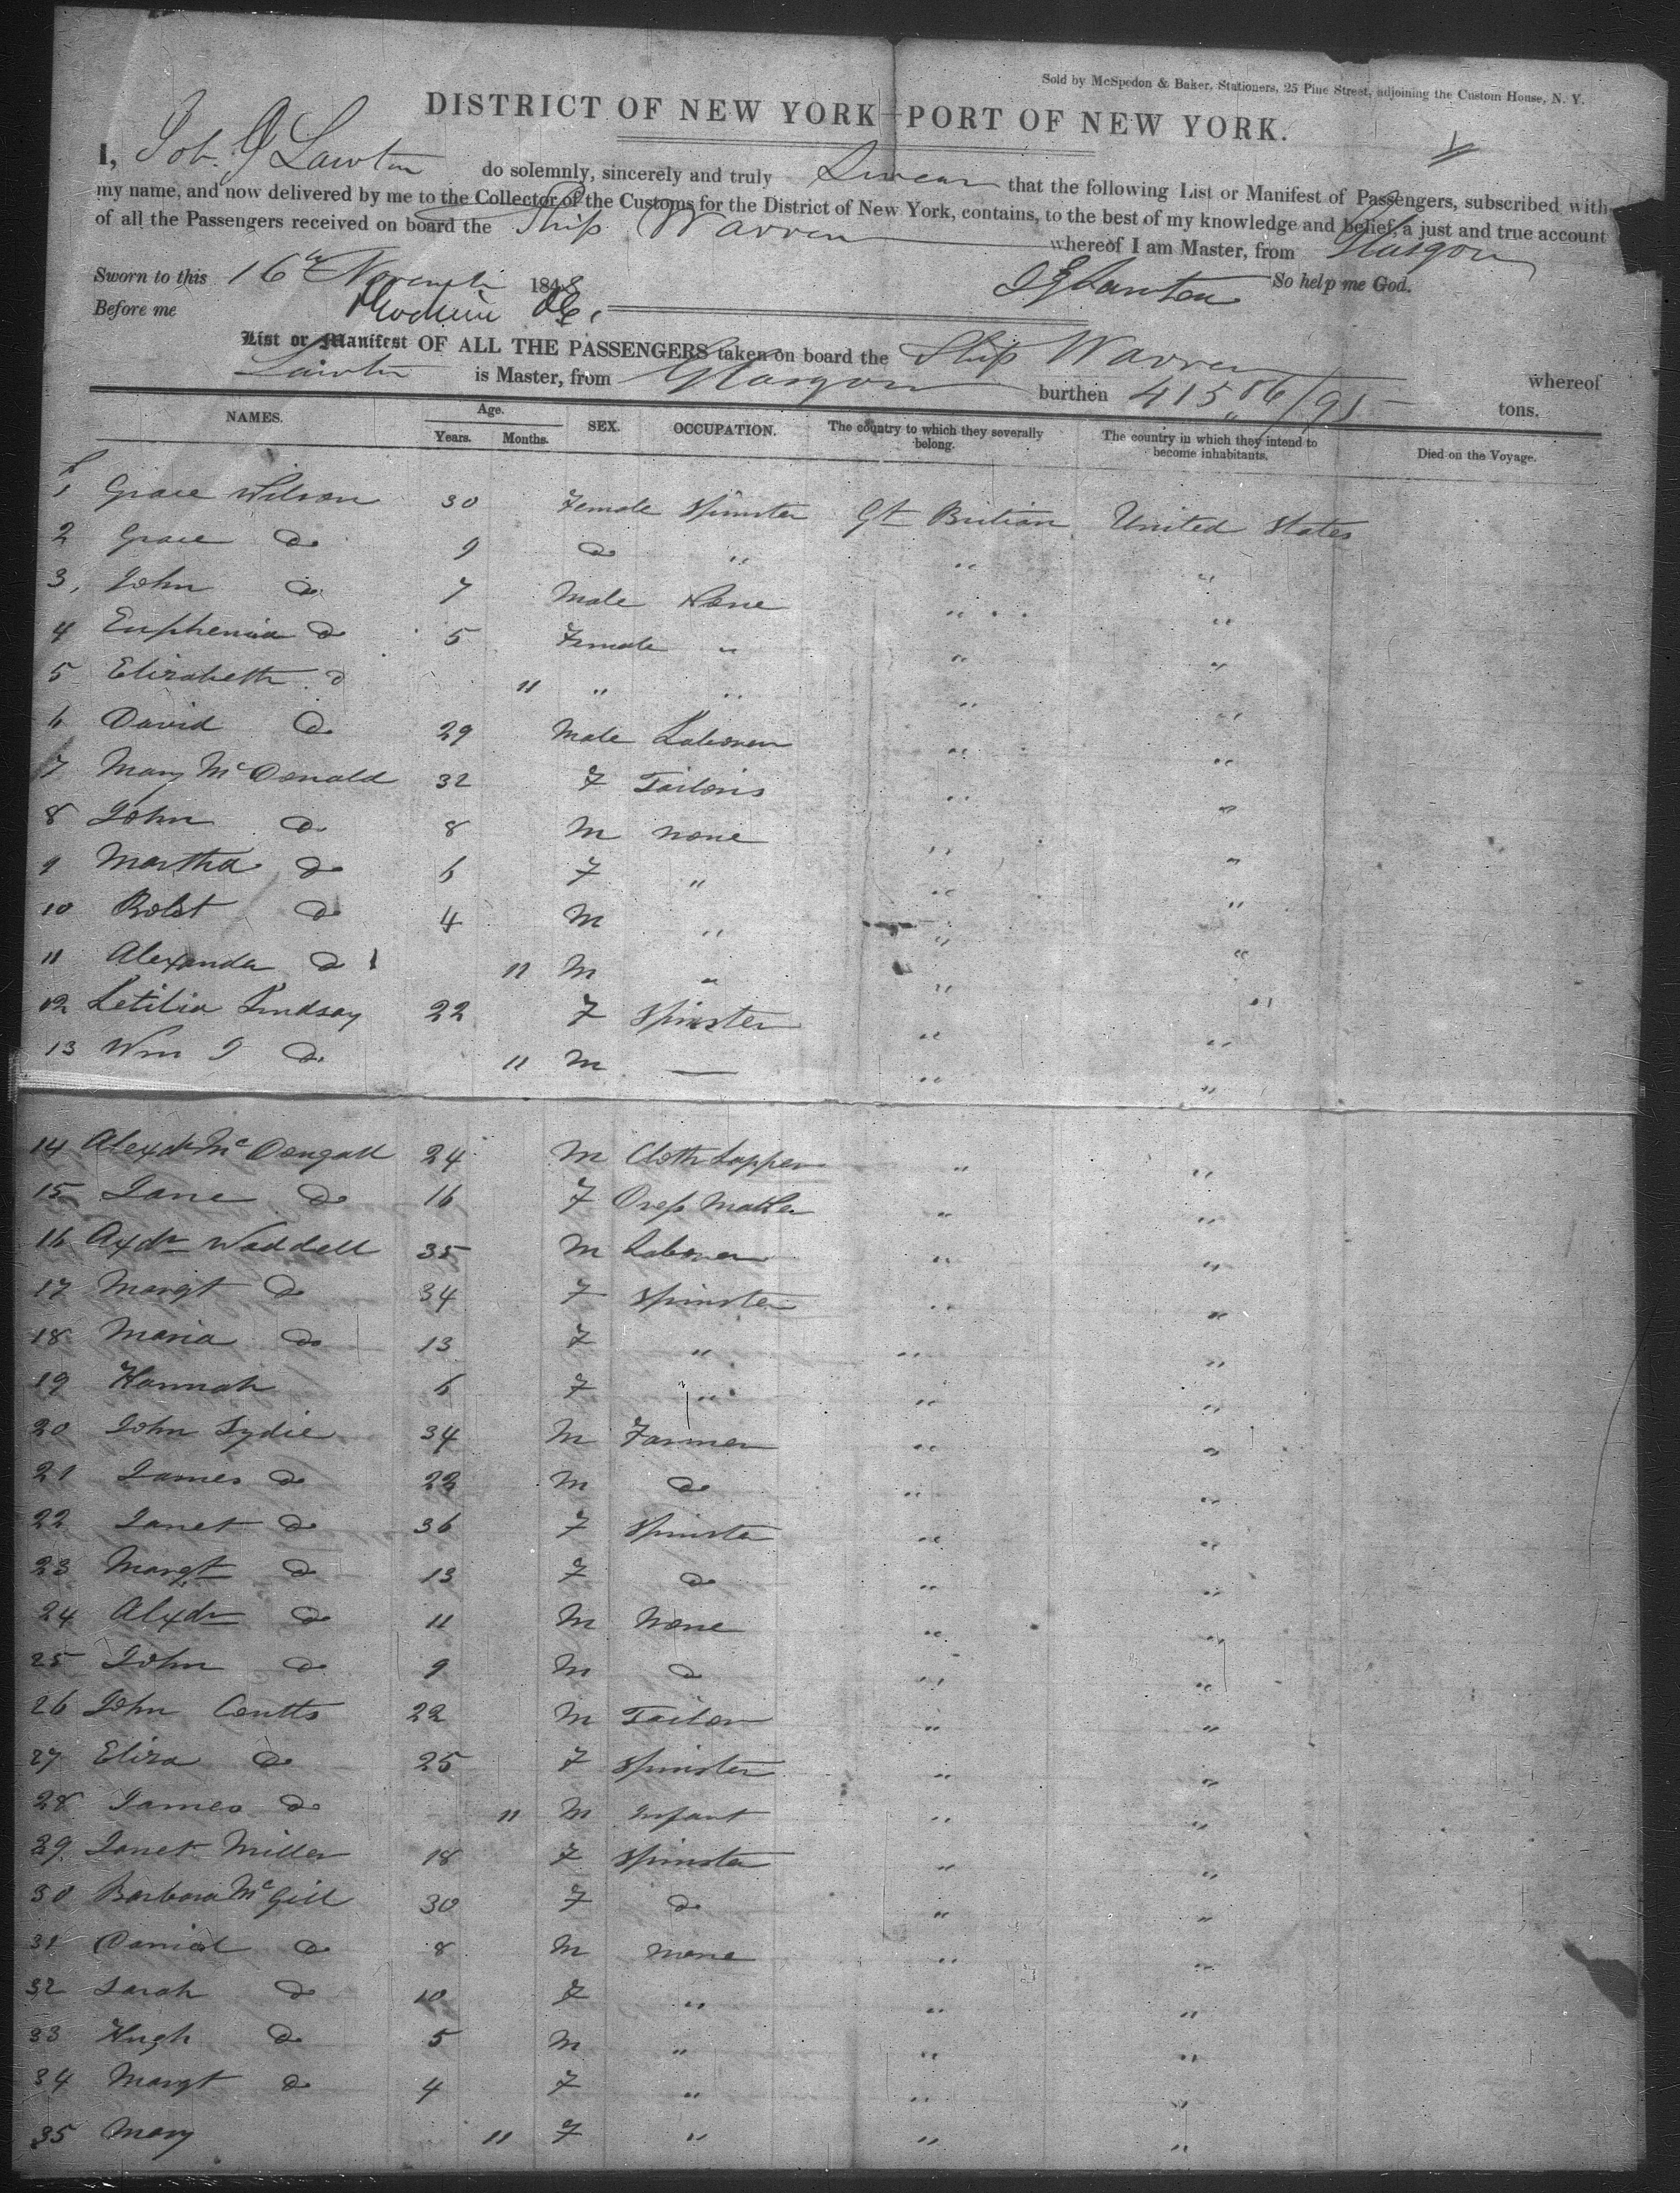 Sold by McSpedon & Baker, Stationers, 25 Pine Street, adjoining the Custom House, N. Y.
DISTRICT OF NEW YORK—PORT OF NEW YORK.
I, Lawton do solemnly, sincerely and truly Swear that the following List or Manifest of Passengers, subscribed with
my name, and now delivered by me to the Collector of the Customs for the District of New York, contains, to the best of my knowledge and belief, a just and true account
of all the Passengers received on board the Ship Warren whereof I am Master, from Glasgow
Sworn to this 16th November 1848 So help me God.
Before me Lawton
List or Manifest OF ALL THE PASSENGERS taken on board the Ship Warren whereof
Lawton is Master, from Glasgow burthen 415 86/95 tons.
NAMES. Age. Years. Months. SEX. OCCUPATION. The country to which they severally belong. The country in which they intend to become inhabitants. Died on the Voyage.
1 Grace Wilson 30 Female Spinster Gt Britian United States
2 Grace Do 9 Do " " "
3, John Do 7 Male None " "
4 Euphemia Do 5 Female " " "
5 Elizabeth Do 11 " " " "
6 David Do 29 Male Laborer " "
7 Mary McDonald 32 F Tailoris " "
8 John Do 8 M none " "
9 Martha Do 6 F " " "
10 Robt Do 4 M " " "
11 Alexander Do 11 M " " "
12 Letitia Lindsay 22 F Spinster " "
13 Wm J Do 11 M — " "
14 Alexdr McDougall 24 M Cloth Lapper " "
15 Jane Do 16 F Dress Maker " "
16 Axdr Waddell 35 M Laborer " "
17 Margt Do 34 F Spinster " "
18 Maria Do 13 F " " "
19 Hannah 6 F " " "
20 John Lydie 34 M Farmer " "
21 James Do 22 M Do " "
22 Janet Do 36 F Spinster " "
23 Margt Do 13 F Do " "
24 Alxdr Do 11 M None " "
25 John Do 9 M Do " "
26 John Coutts 22 M Tailor " "
27 Eliza Do 25 F Spinster " "
28 James Do 11 M Infant " "
29. Janet Miller 18 F Spinster " "
30 Barbara McGill 30 F Do " "
31 Daniel Do 8 M none " "
32 Sarah Do 10 F " " "
33 Hugh Do 5 M " " "
34 Margt Do 4 F " " "
35 Mary 11 F " " "